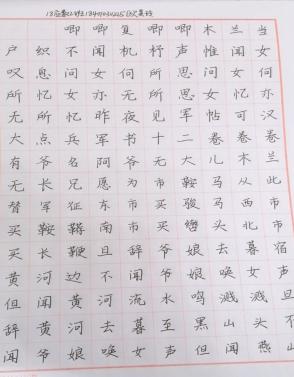 唧唧复唧唧木兰当
户织不闻机杼声惟闻女
叹息问女何所思问女何
所忆女亦无所思女忆亦
无所忆昨夜见军帖可汉
大点兵军书十二卷卷卷
有爷名阿爷无大儿木兰
无长兄愿为市鞍马从此
替军征东市买骏马西市
买鞍鞯南市买辔头北市
买长鞭旦辞爷娘去暮宿
黄河边不闻爷娘唤女声
但闻黄河流水鸣溅溅旦
辞黄河去暮至黑山头不
闻爷娘唤女声但闻燕